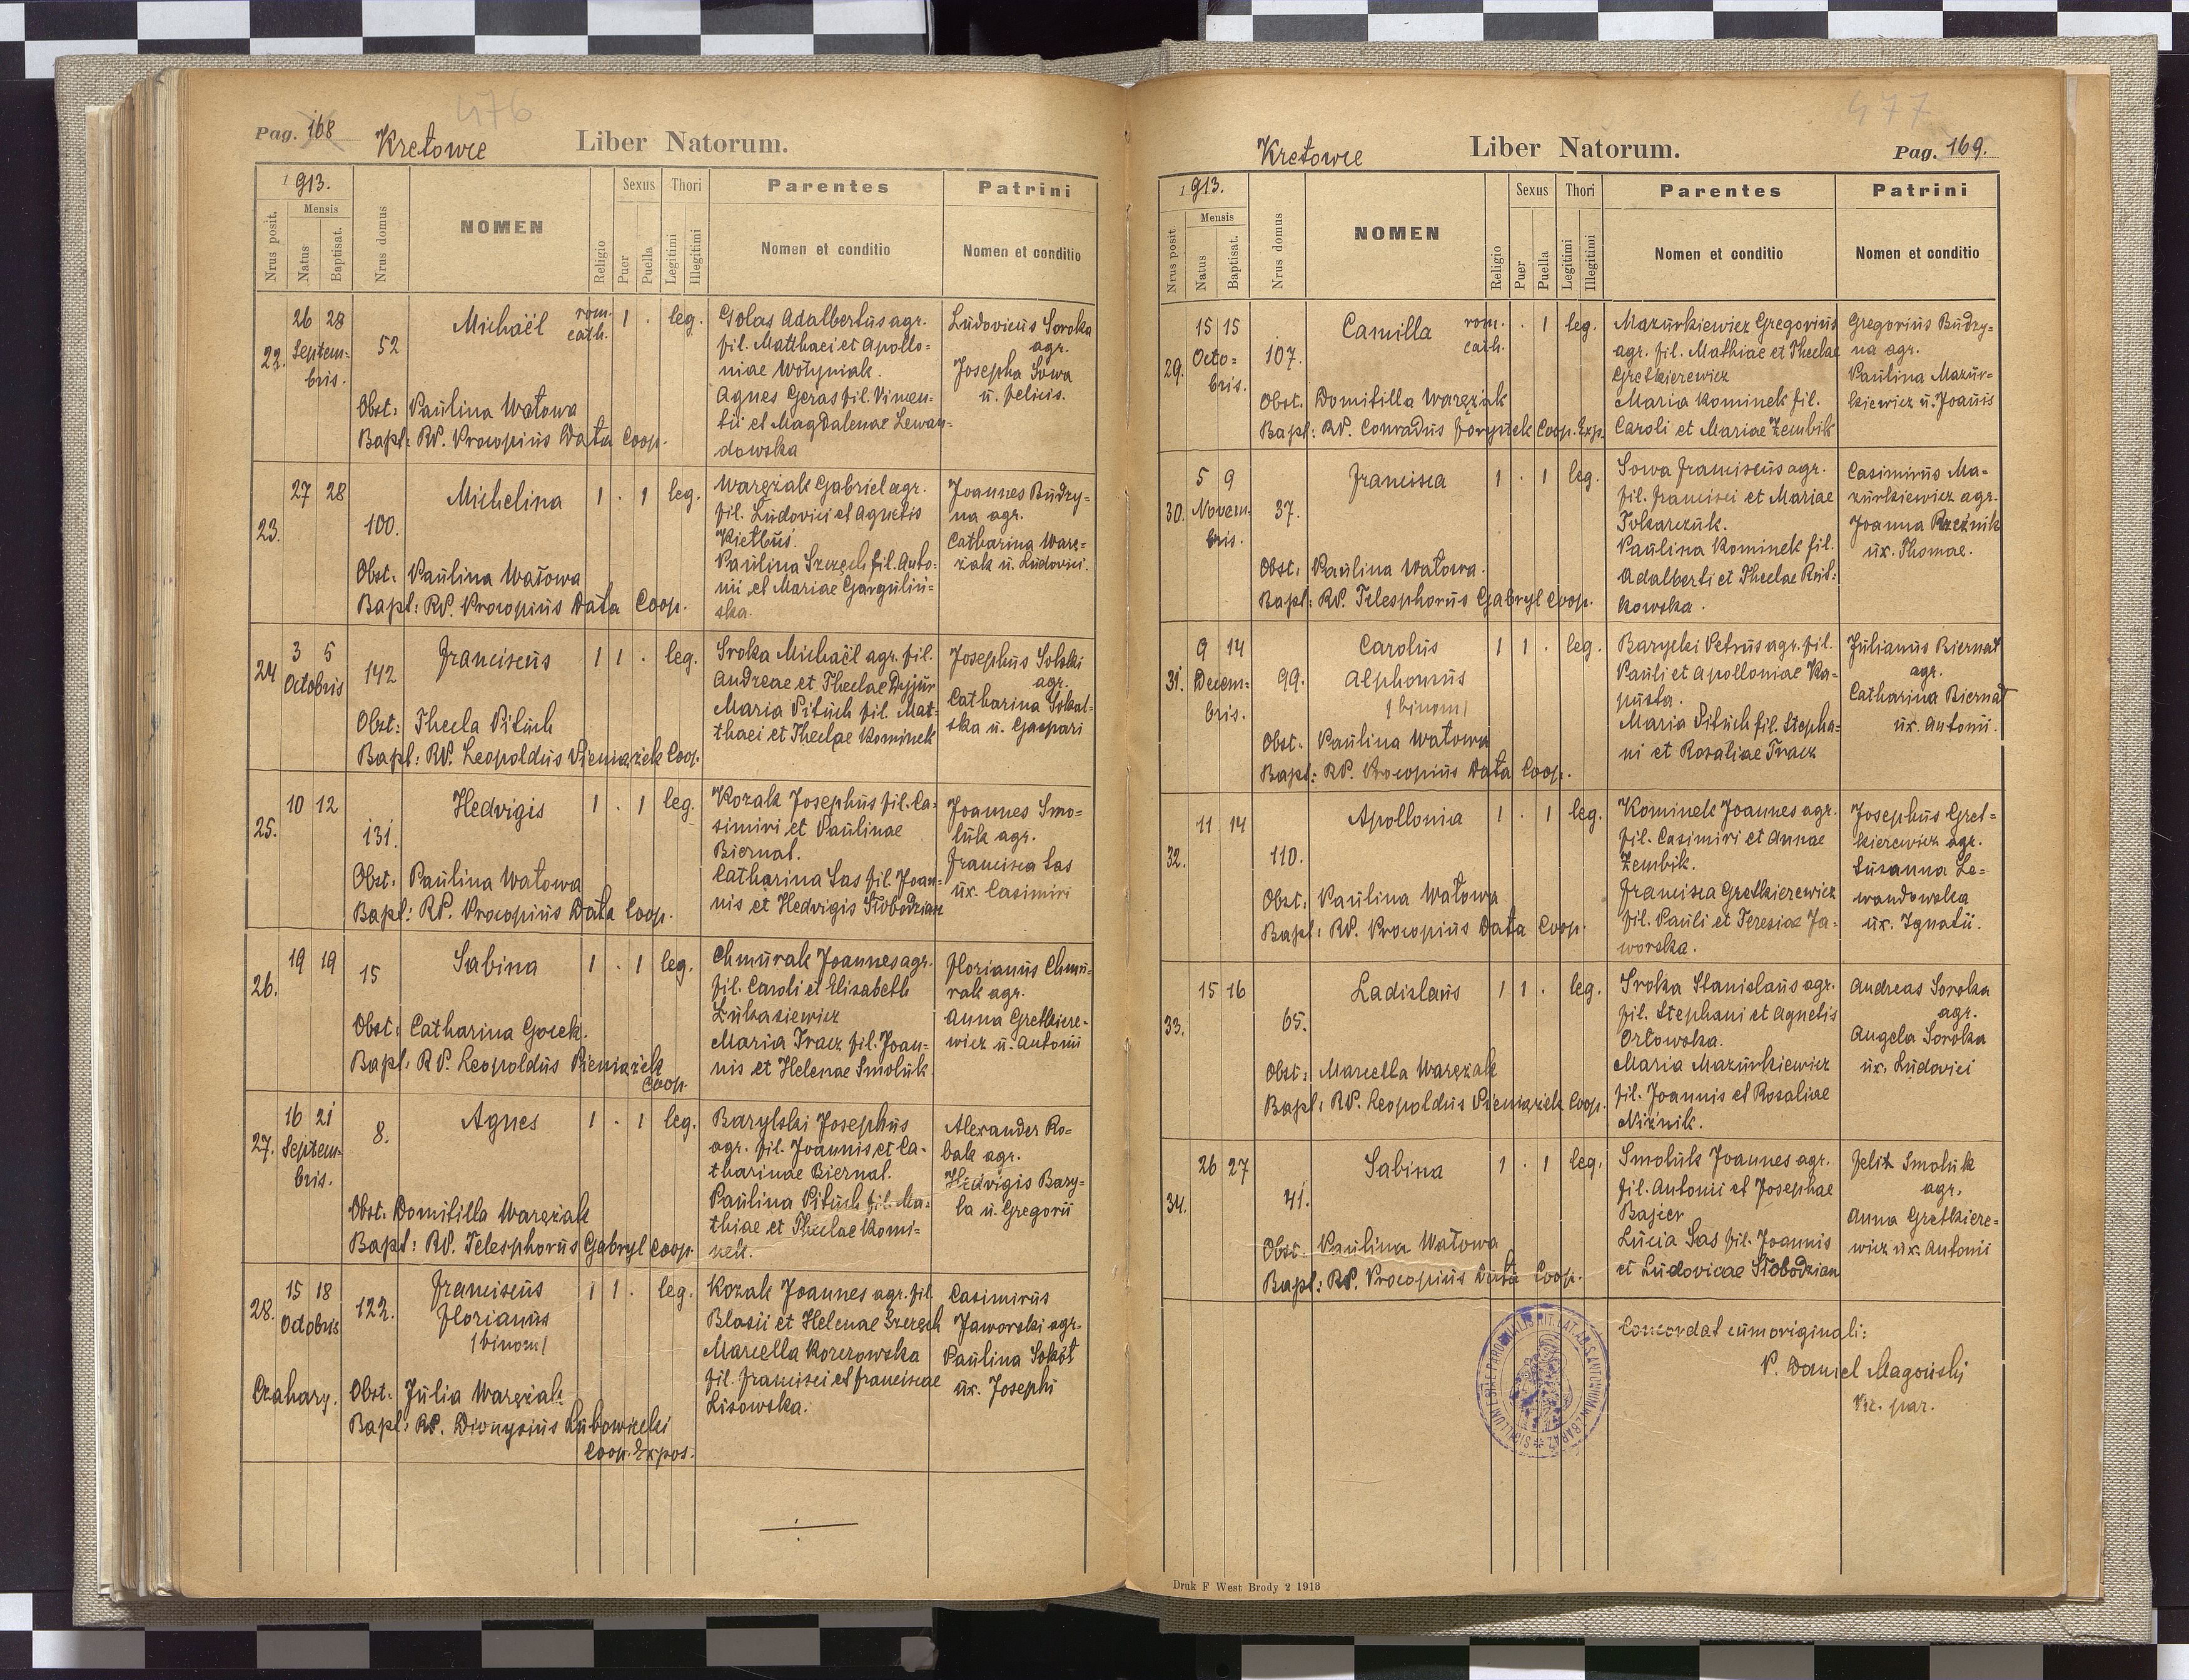 476
Pag. 168
Kretowce
Liber Natorum.
1913.
Nrus posit.
Mensis
Natus
Baptisat.
Nrus domus
NOMEN
Religio
Sexus
Puer
Puella
Thori
Legitimi
Illegitimi
Parentes
Nomen et conditio
Patrini
Nomen et conditio
22.
26 28
Septem=
bris.
52
Michaël
rom.
cath.
1 . leg.
Golas Adalbertus agr.
fil. Matthaei et Apollo=
niae Wołyniak.
Agnes Geras fil. Vincen=
tii et Magdalenae Lewan=
dowska
Ludovicus Soroka
agr.
Josepha Sowa
u. Felicis.
Obst: Paulina Watowa
Bapt: RP. Procopius Data Coop.
23.
27 28
100.
Michelina
1 . 1 leg.
Waręzak Gabriel agr.
fil. Ludovici et Agnetis
Kiełbus.
Paulina Szezęch fil. Anto=
nii et Mariae Gargulin=
ska.
Joannes Budzy=
na agr.
Catharina Warę=
zak u. Ludovici.
Obst: Paulina Watowa
Bapt: RP. Procopius Data Coop.
24
3 5
Octobris
142
Franciscus
1 1 . leg.
Sroka Michaël agr. fil.
Andreae et Theclae Dyjur
Maria Pituch fil. Mat=
thaei et Theclae Kominek
Josephus Solski
agr.
Catharina Sokal=
ska u. Gaspari
Obst: Thecla Pituch
Bapt: RP. Leopoldus Pieniązek Coop.
25.
10 12
131.
Hedvigis
1 . 1 leg.
Kozak Josephus fil. Ca=
simiri et Paulinae
Biernat.
Catharina Sas fil. Joan=
nis et Hedvigis Słobodzian
Joannes Smo=
luk agr.
Francisca Sas
ux. Casimiri
Obst: Paulina Watowa
Bapt: RP. Procopius Data Coop.
26.
19 19
15
Sabina
1 . 1 leg.
Chmurak Joannes agr.
fil. Caroli et Elisabeth
Łukasiewicz
Maria Tracz fil. Joan=
nis et Helenae Smoluk
Florianus Chmu=
rak agr.
Anna Gretkiere=
wicz u. Antonii
Obst: Catharina Gocek.
Bapt: RP. Leopoldus Pieniązek
Coop.
27.
16 21
Septem=
bris.
8.
Agnes
1 . 1 leg.
Barylski Josephus
agr. fil. Joannis et Ca=
tharinae Biernat.
Paulina Pituch fil. Ma=
thiae et Theclae Komi=
nek.
Alexander Ro=
bak agr.
Hedvigis Bary=
ła u. Gregorii
Obst: Domitilla Waręzak
Bapt: RP. Telesphorus Gabryl Coop.
28.
15 18
Octobris
122.
Franciscus
Florianus
/binom/
1 1 . leg.
Kozak Joannes agr. fil.
Blasii et Helenae Szezęch
Marcella Korzowska
fil. Francisci et Franciscae
Lisowska.
Casimirus
Jaworski agr.
Paulina Sokół
ux. Josephi
Czahary.
Obst: Julia Waręzak
Bapt: RP. Dionysius Lubowiecki
Coop. Expos.
477
Kretowce
Liber Natorum.
Pag. 169.
1913.
Nrus posit.
Mensis
Natus
Baptisat.
Nrus domus
NOMEN
Religio
Sexus
Puer
Puella
Thori
Legitimi
Illegitimi
Parentes
Nomen et conditio
Patrini
Nomen et conditio
29.
15 15
Octo=
bris.
107.
Camilla
rom.
cath.
. 1 leg.
Mazurkiewicz Gregorius
agr. fil. Mathiae et Theclae
Gretkierewicz
Maria Kominek fil.
Caroli et Mariae Zembik
Gregorius Budzy=
na agr.
Paulina Mazur=
kiewicz u. Joanis
Obst. Domitilla Waręzak
Bapt: RP. Conradus Forysiek Coop. Exp.
30.
5 9
Novem=
bris.
37.
Francisca
1 . 1 leg.
Sowa Franciscus agr.
fil. Francisci et Mariae
Tokarczuk.
Paulina Kominek fil.
Adalberti et Theclae Rut=
kowska.
Casimirus Ma=
zurkiewicz agr.
Joanna Rzeźnik
ux. Thomae.
Obst: Paulina Watowa.
Bapt: RP. Telesphorus Gabryl Coop.
31.
9 14
Decem=
bris.
99.
Carolus
Alphonsus
/binom/
1 1 . leg.
Barycki Petrus agr. fil.
Pauli et Apolloniae Ka=
pusta.
Maria Pituch fil. Stepha=
ni et Rosaliae Tracz
Julianus Biernat
agr.
Catharina Biernat
ux. Antonii.
Obst: Paulina Watowa
Bapt: RP. Procopius Data Coop.
32.
11 14
110.
Apollonia
1 . 1 leg.
Kominek Joannes agr.
fil. Casimiri et Annae
Zembik.
Francisca Gretkierewicz
fil. Pauli et Teresiae Ja=
worska.
Josephus Gret=
kierewicz agr.
Susanna Le=
wandowska
ux. Ignatii.
Obst: Paulina Watowa
Bapt: RP. Procopius Data Coop.
33.
15 16
65.
Ladislaus
1 1 . leg.
Sroka Stanislaus agr.
fil. Stephani et Agnetis
Orłowska.
Maria Mazurkiewicz
fil. Joannis et Rosaliae
Niżnik.
Andreas Soroka
agr.
Angela Soroka
ux. Ludovici
Obst: Marcella Waręzak
Bapt: RP. Leopoldus Pieniązek Coop.
34.
26 27
41.
Sabina
1 . 1 leg.
Smoluk Joannes agr.
fil. Antonii et Josephae
Bajer
Lucia Sas fil. Joannis
et Ludovicae Słobodzian
Felix Smoluk
agr.
Anna Gretkiere=
wicz ux. Antonii
Obst: Paulina Watowa
Bapt: RP. Procopius Data Coop.
Concordat cum originali:
P. Daniel Magoński
Vic. par.
Druk F West Brody 2 1913